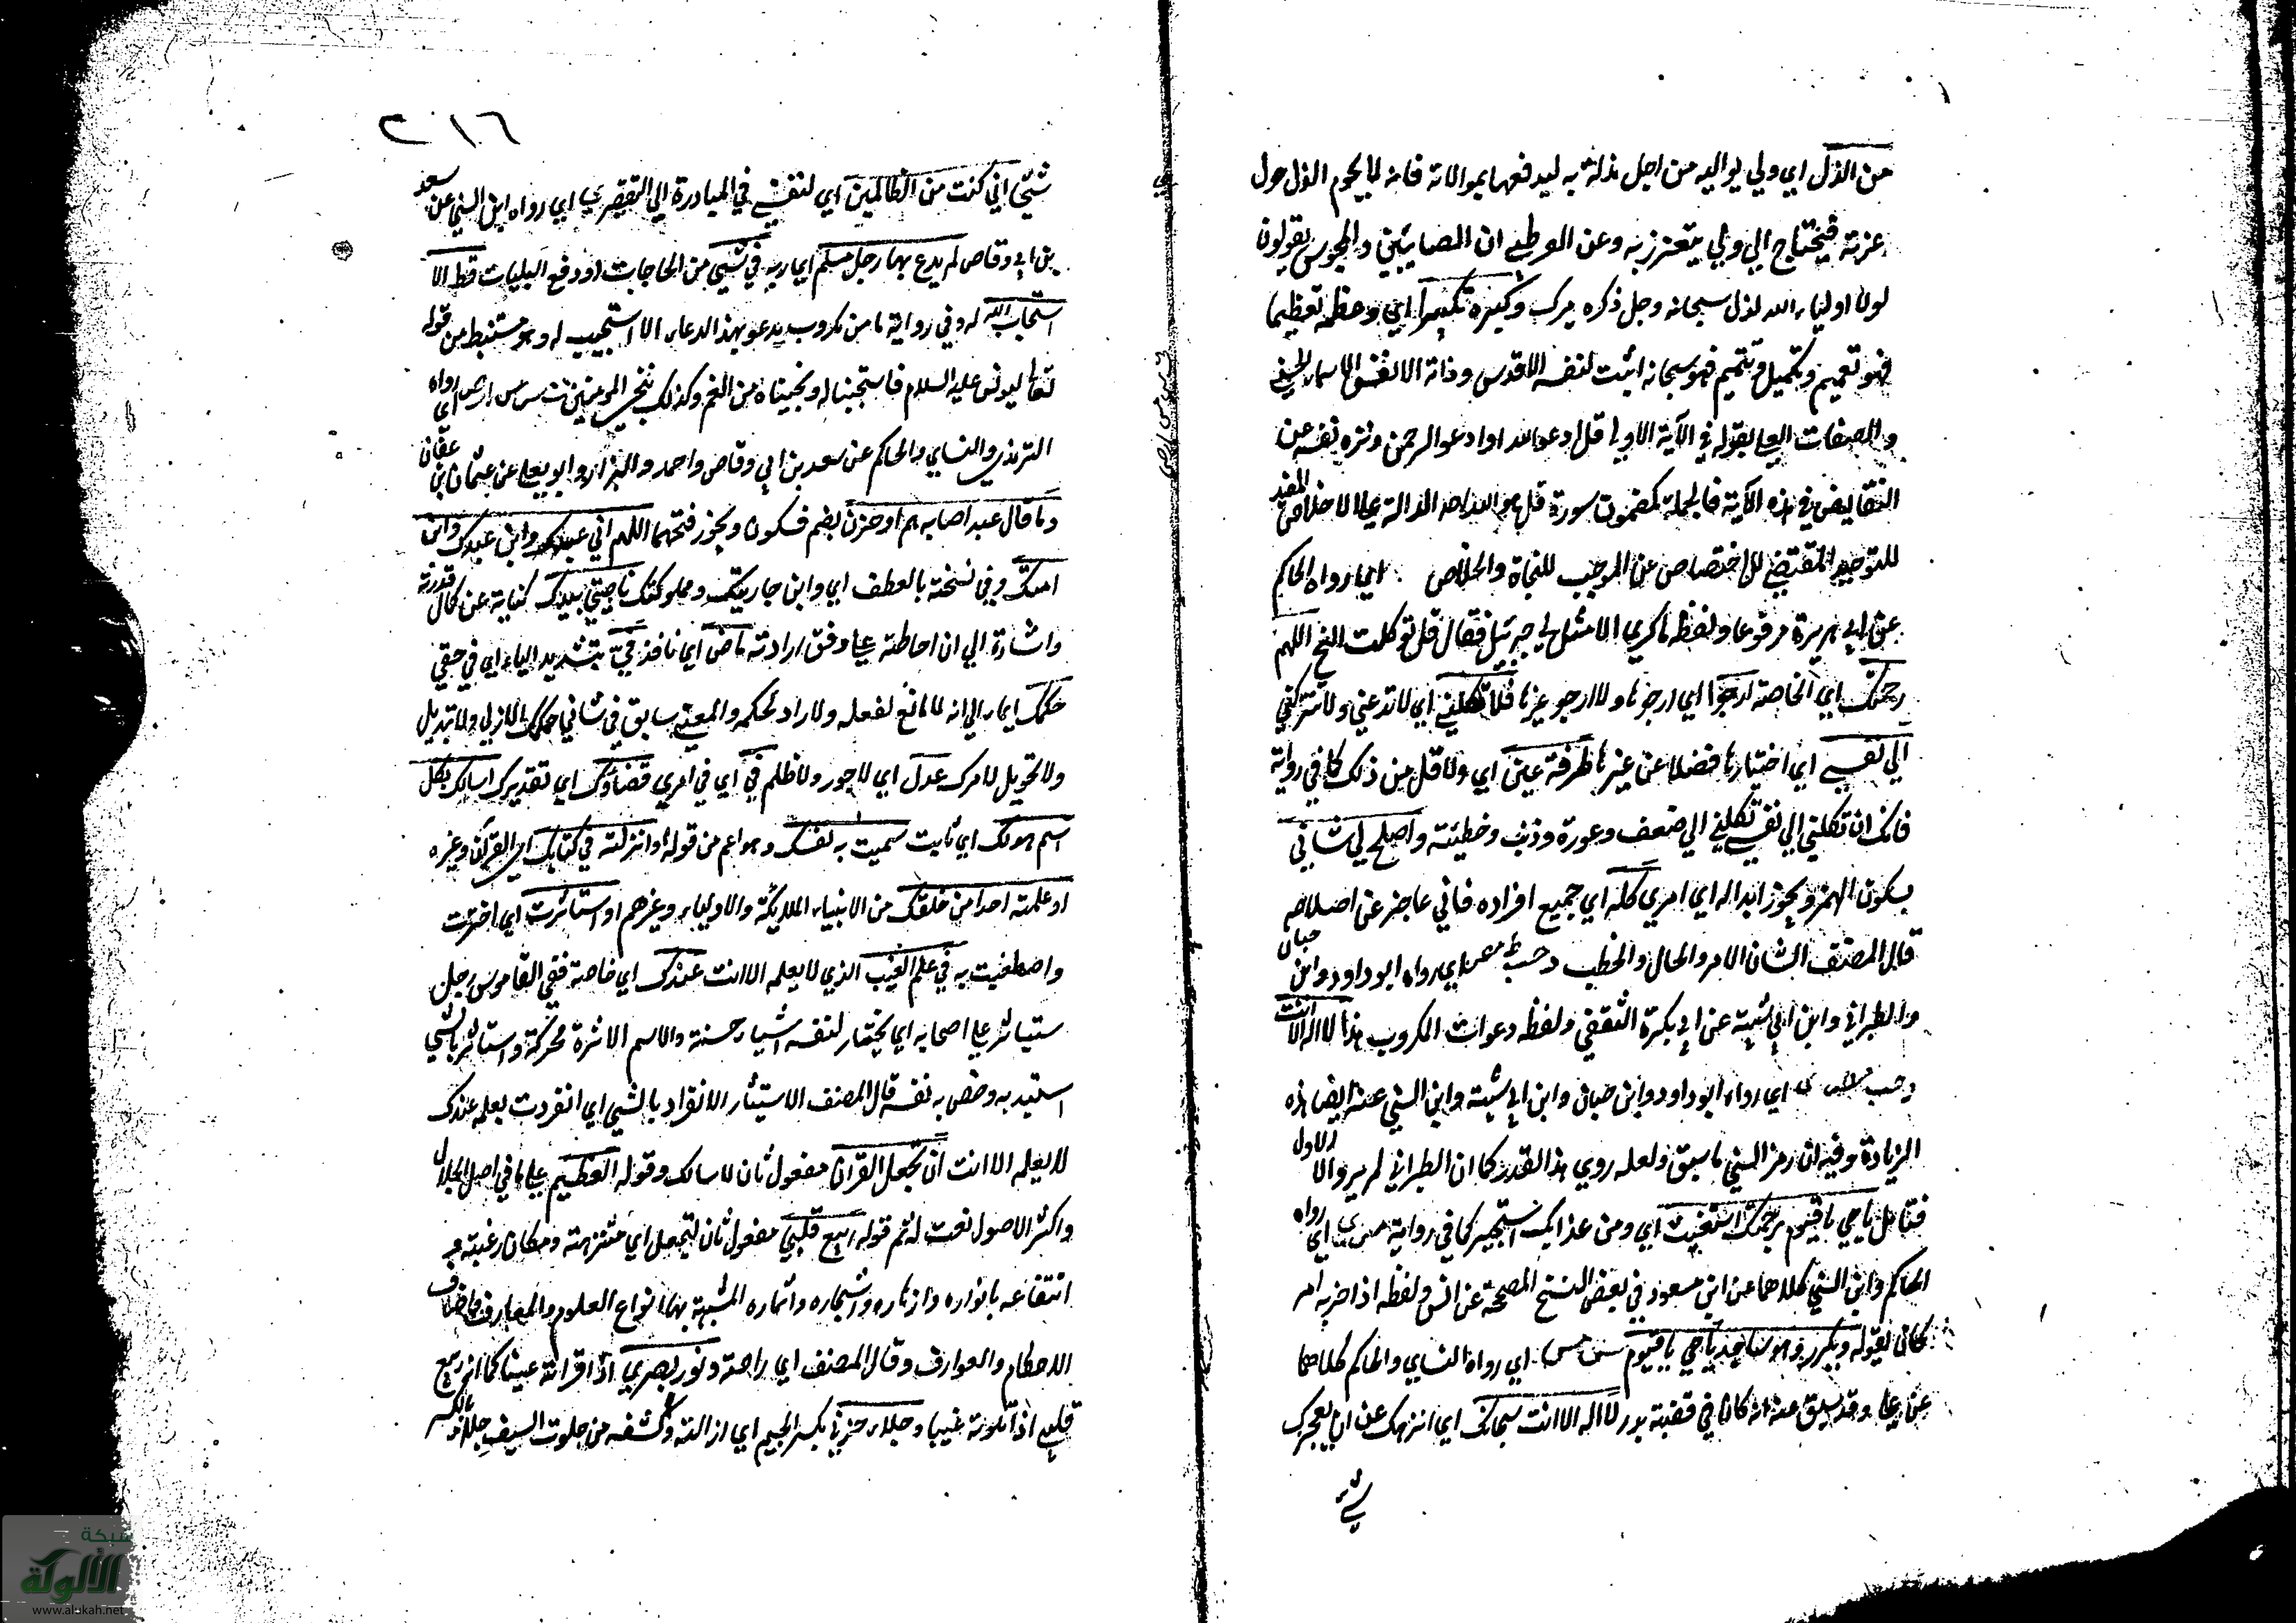 من الذل اي ولي يواليه من اجل مذلة به ليدفعها بموالاته فانه لم يحم الذل حول
عزته فيحتاج الي ولي يتعزز به وعن القرطبي ان الصابئين والمجوس يقولون
لولا اولياء الله لذل سبحانه وجل ذكره وكبره تكبيرا اي وعظمه تعظيما
فهو تعميم وتكميل وتتميم فهو سبحانه اثبت لنفسه الاقدس وذاته الانفس الاسماء الحسني
والصفات العلي بقوله في الآية الاولي قل ادعوا الله او ادعوا الرحمن ونزه نفسه عن
النقايص في هذه الآية فالجملة كمضمون سورة قل هو الله احد الدالة علي الاخلاص المفيد
للتوحيد المقتضي للاختصاص عن الموجب للنجاة والخلاص اي رواه الحاكم
عن ابي هريرة مرفوعا ولفظه ما كربي الا مثل لي جبرئيل فقال قل توكلت الخ اللهم
رحمتك اي الخاصة ارجوا اي ارجوها ولا ارجو غيرها فلا تكلني اي لا تدعني ولا تتركني
الي نفسي اي اختيارها فضلا عن غيرها طرفة عين اي ولا اقل من ذلك كما في رواية
فانك ان تكلني الي نفسي تكلني الي ضعف وعورة وذنب وخطيئة واصلح لي شاني
بسكون الهمز ويجوز ابداله اي امري كله اي جميع افراده فاني عاجز عن اصلاحه
قال المصنف الشان الامر والحال والخطب د حب ط مص اي رواه ابو داود وابن حبان
والطبراني وابن ابي شيبة عن ابي بكرة الثقفي ولفظه دعوات المكروب هذا لا اله الا انت
د حب مص ي اي رواه ابو داود وابن حبان وابن ابي شيبة وابن السني عنه ايضا هذه
الزيادة وفيه ان رمز السني ما سبق ولعله روي هذا القدر كما ان الطبراني لم يرو الا الاول
فتامل يا حي يا قيوم برحمتك استغيث اي ومن عذابك استجير كما في رواية مس ي اي رواه
الحاكم وابن السني كلاهما عن ابن مسعود في بعض النسخ المصححة عن انس ولفظه اذا حزبه امر
كان يقوله ويكرر وهو ساجد يا حي يا قيوم س مس اي رواه النساي والحاكم كلاهما
عن علي وقد سبق عنه انه كان في قضية بدر لا اله الا انت سبحانك اي انزهك عن ان يعجزك
شيء
٢١٦
شيئ اني كنت من الظالمين اي لنفسي في المبادرة الي التقصير ي اي رواه ابن السني عن سعد
بن ابي وقاص لم يدع بها رجل مسلم اي ربه في شيئ من الحاجات او دفع البليات قط الا
استجاب الله له وفي رواية ما من مكروب يدعو بهذا الدعاء الا استجيب له وهو مستنبط من قوله
تعالي ليونس عليه السلام فاستجبنا له ونجيناه من الغم وكذلك ننجي المومنين ت س مس ا ر ص اي رواه
الترمذي والنساي والحاكم عن سعد بن ابي وقاص واحمد والبزار وابو يعلي عن عثمان بن عفان
وما قال عبد اصابه هم او حزن بضم فسكون ويجوز فتحهما اللهم اني عبدك وابن عبدك وابن
امتك وفي نسخة بالعطف اي وابن جاريتك ومملوكتك ناصيتي بيدك كناية عن كمال قدرته
واشارة الي ان احاطته علي وفق ارادته ماض اي نافذ فيّ بتشديد الياء اي في حقي
حكمك ايماء الي انه لا مانع لفعله ولا راد لحكمه والمعني سابق في شاني حكمك الازلي ولا تبديل
ولا تحويل لامرك عدل اي لا جور ولا ظلم فيّ اي في امري قضاؤك اي تقديرك اسالك بكل
اسم هو لك اي ثابت سميت به نفسك وهو اعم من قوله او انزلته في كتابك اي القرآن وغيره
او علمته احدا من خلقك من الانبياء الملايكة والاولياء وغيرهم او استاثرت اي اخترت
واصطفيت به في علم الغيب الذي لا يعلمه الا انت عندك اي خاصة ففي القاموس رجل
يستاثر علي اصحابه اي يختار لنفسه اشياء حسنة والاسم الاثرة محركة واستاثر بالشيي
استبد به وخص به نفسه قال المصنف الاستيثار الانفراد بالشيي اي انفردت بعلمه عندك
لا يعلمه الا انت ان تجعل القران مفعول ثان لاسالك وقوله العظيم علي ما في اصل الجلال
واكثر الاصول نعت له ثم قوله ربيع قلبي مفعول ثان لتجعل اي متنزهه ومكان رغبته و
انتفاعه بانواره وازهاره واشجاره واثماره المشبهة بها انواع العلوم والمعارف واصناف
الاحكام والعوارف وقال المصنف اي راحته ونور بصري اذا قراته عينا كما انه ربيع
قلبي اذا تلوته غيبا وجلاء حزني بكسر الجيم اي ازالته وكشفه من جلوت السيف جلاء بالكسر
شبكة
الألوكة
www.alukah.net